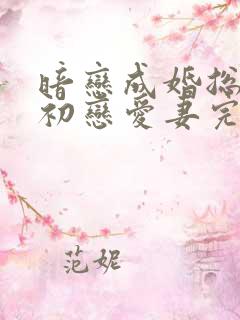 暗戀成婚總
初戀愛妻完
范妮